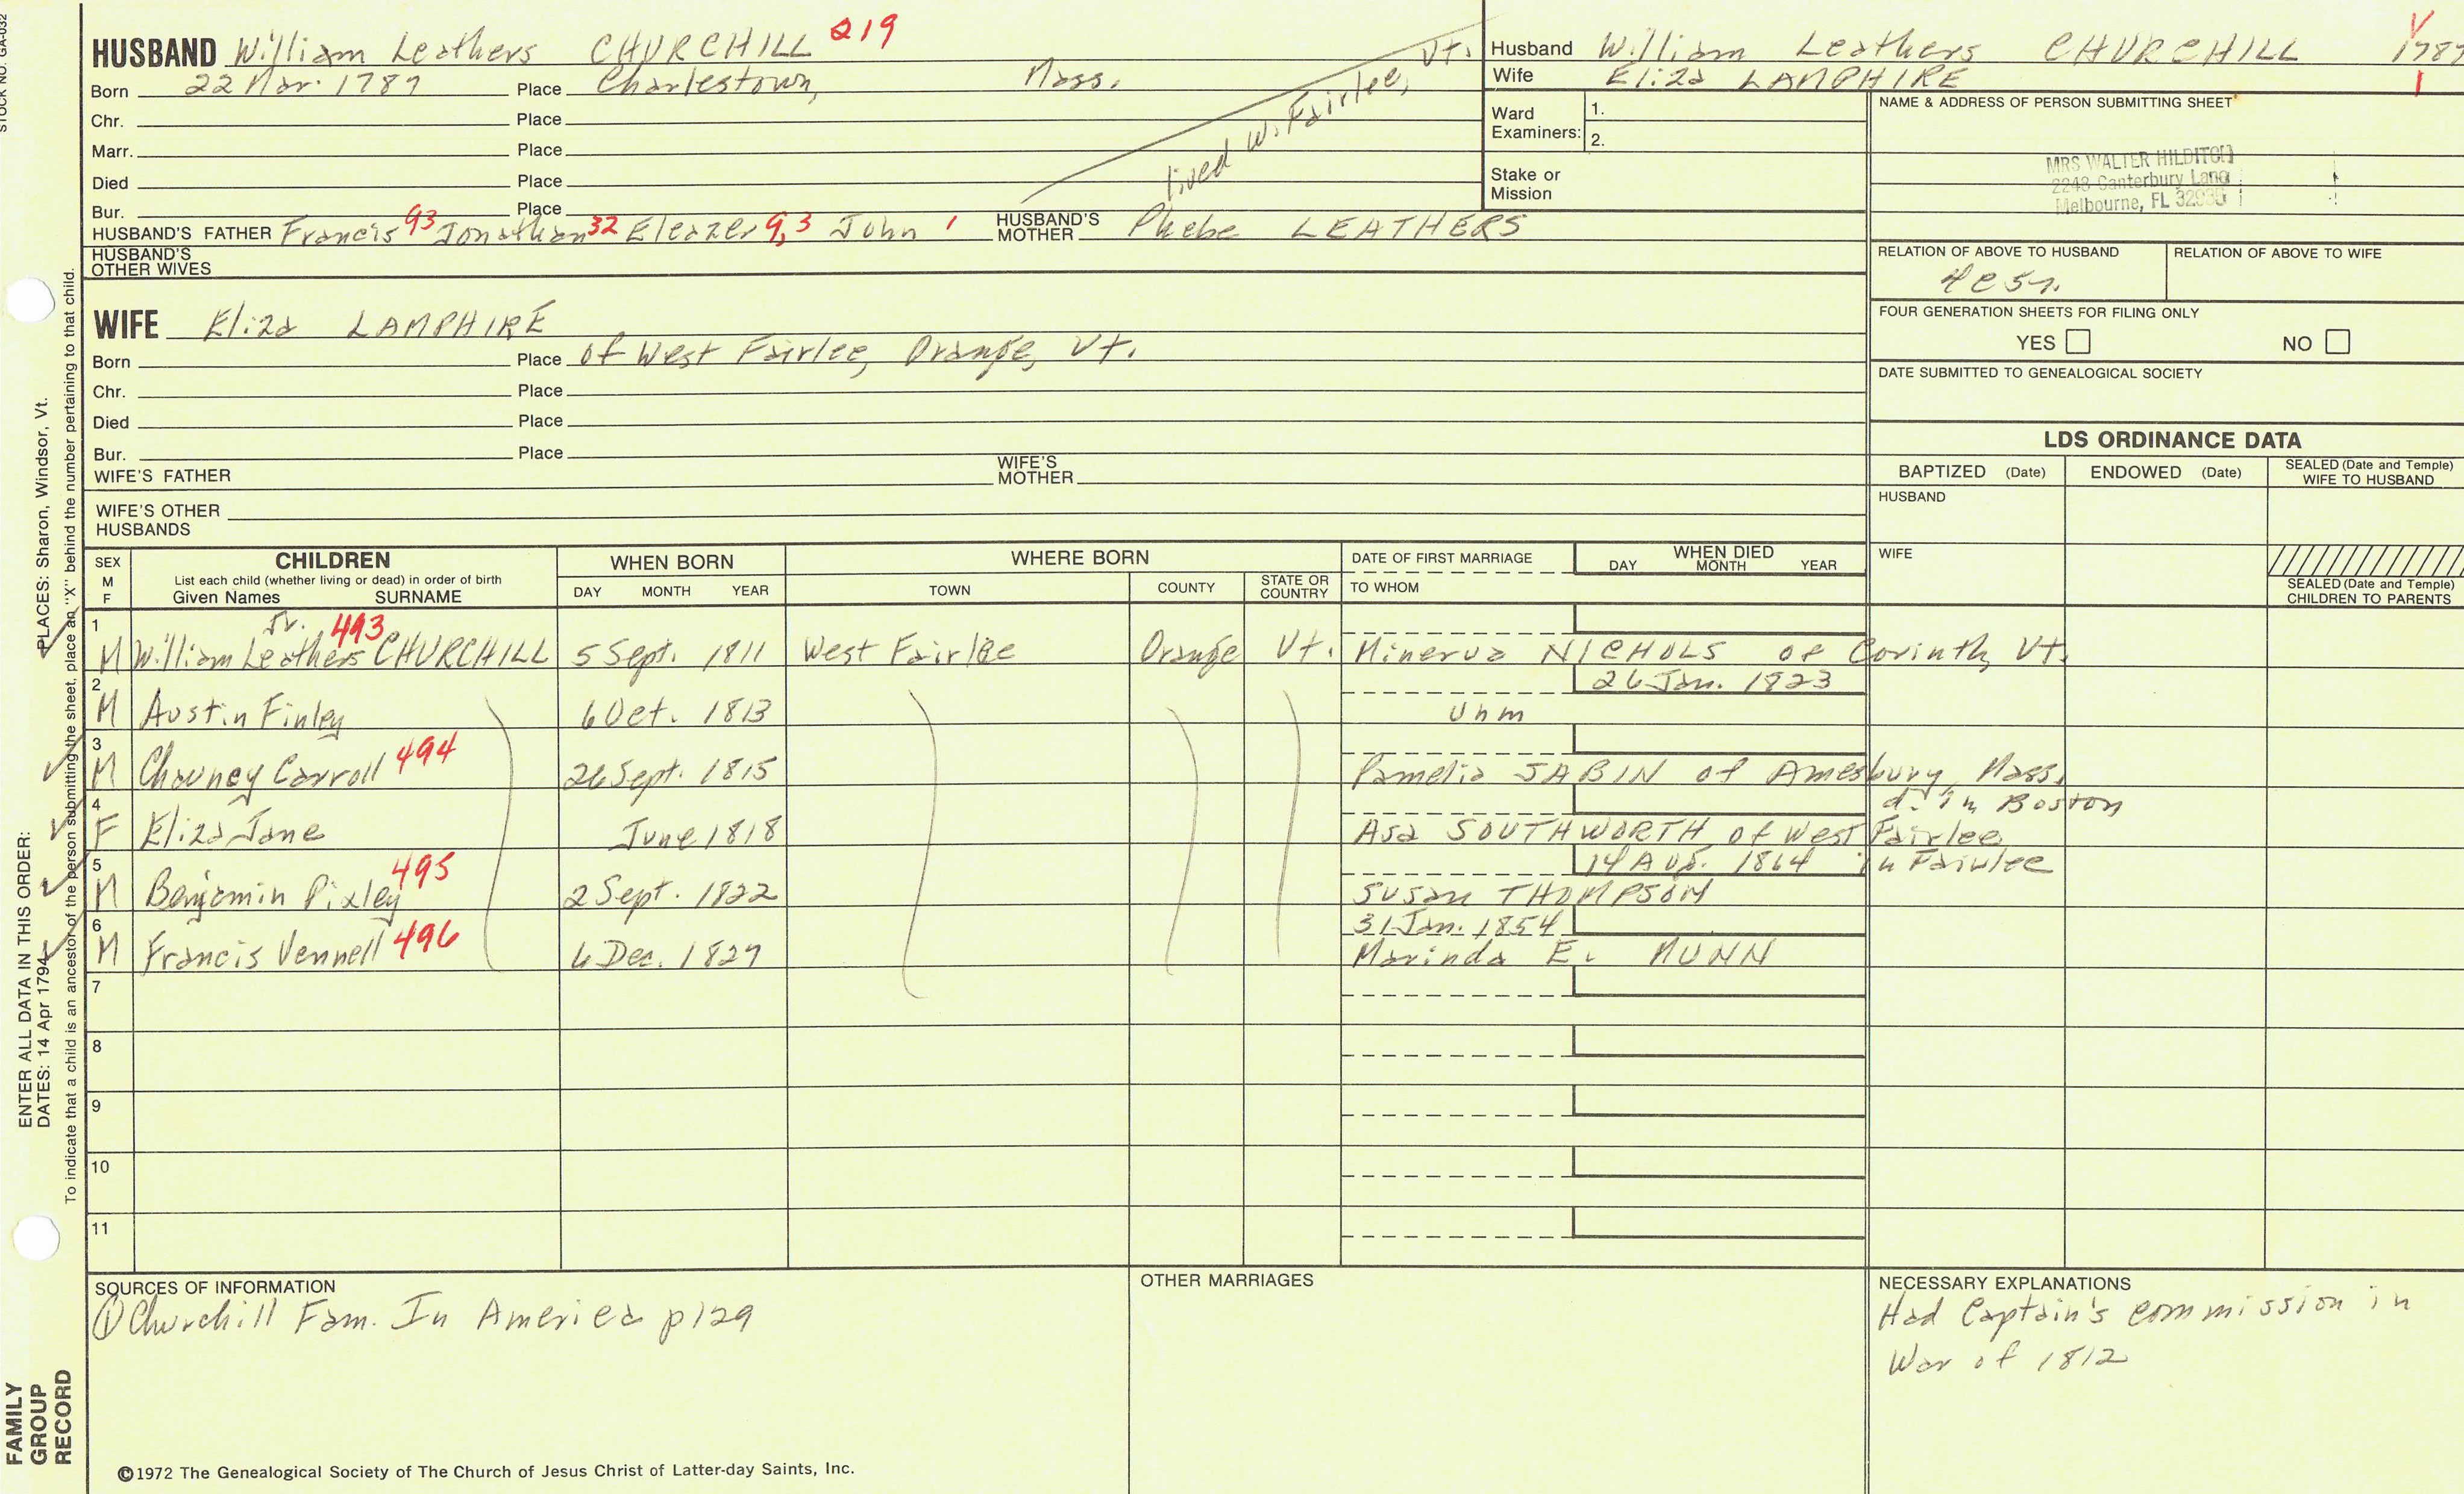 STOCK NO. GA-032
HUSBAND William Leathers CHURCHILL 219
Born 22 Mar. 1787 Place Charlestown, Mass.
Chr. Place
Marr. Place
Died Place
Bur. Place
lived W. Fairlee, Vt.
HUSBAND'S FATHER Francis 93 Jonathan 32 Eleazer 9,3 John 1 HUSBAND'S MOTHER Phebe LEATHERS
HUSBAND'S OTHER WIVES
WIFE Eliza LAMPHIRE
Born Place of West Fairlee, Orange, Vt.
Chr. Place
Died Place
Bur. Place
WIFE'S FATHER WIFE'S MOTHER
WIFE'S OTHER HUSBANDS
Husband William Leathers CHURCHILL 1787
Wife Eliza LAMPHIRE
Ward Examiners: 1.
2.
Stake or Mission
NAME & ADDRESS OF PERSON SUBMITTING SHEET
MRS WALTER HILDITCH
2248 Canterbury Lane
Melbourne, FL
RELATION OF ABOVE TO HUSBAND RELATION OF ABOVE TO WIFE
FOUR GENERATION SHEETS FOR FILING ONLY
YES NO
DATE SUBMITTED TO GENEALOGICAL SOCIETY
LDS ORDINANCE DATA
BAPTIZED (Date) ENDOWED (Date) SEALED (Date and Temple) WIFE TO HUSBAND
HUSBAND
WIFE
SEALED (Date and Temple) CHILDREN TO PARENTS
SEX M F CHILDREN WHEN BORN WHERE BORN DATE OF FIRST MARRIAGE WHEN DIED
List each child (whether living or dead) in order of birth
Given Names SURNAME DAY MONTH YEAR TOWN COUNTY STATE OR COUNTRY TO WHOM DAY MONTH YEAR
1 Jr. 493
M William Leathers CHURCHILL 5 Sept. 1811 West Fairlee Orange Vt. Minerva NICHOLS of Corinth, Vt.
2 26 Jan. 1823
M Austin Finley 6 Oct. 1813 Unm
3 494
M Chauncy Carroll 26 Sept. 1815 Pamelia SABIN of Amesbury, Mass.
4 d. in Boston
F Eliza Jane June 1818 Asa SOUTHWORTH of West Fairlee
5 495 14 Aug. 1864 in Fairlee
M Benjamin Pixley 2 Sept. 1822 Susan THOMPSON
6 496 31 Jan. 1854
M Francis Vennell 6 Dec. 1827 Marinda E. MUNN
7
8
9
10
11
SOURCES OF INFORMATION
① Churchill Fam. In America p129
OTHER MARRIAGES
NECESSARY EXPLANATIONS
Had Captain's commission in
War of 1812
©1972 The Genealogical Society of The Church of Jesus Christ of Latter-day Saints, Inc.
ENTER ALL DATA IN THIS ORDER:
DATES: 14 Apr 1794 PLACES: Sharon, Windsor, Vt.
To indicate that a child is an ancestor of the person submitting the sheet, place an "X" behind the number pertaining to that child.
FAMILY
GROUP
RECORD